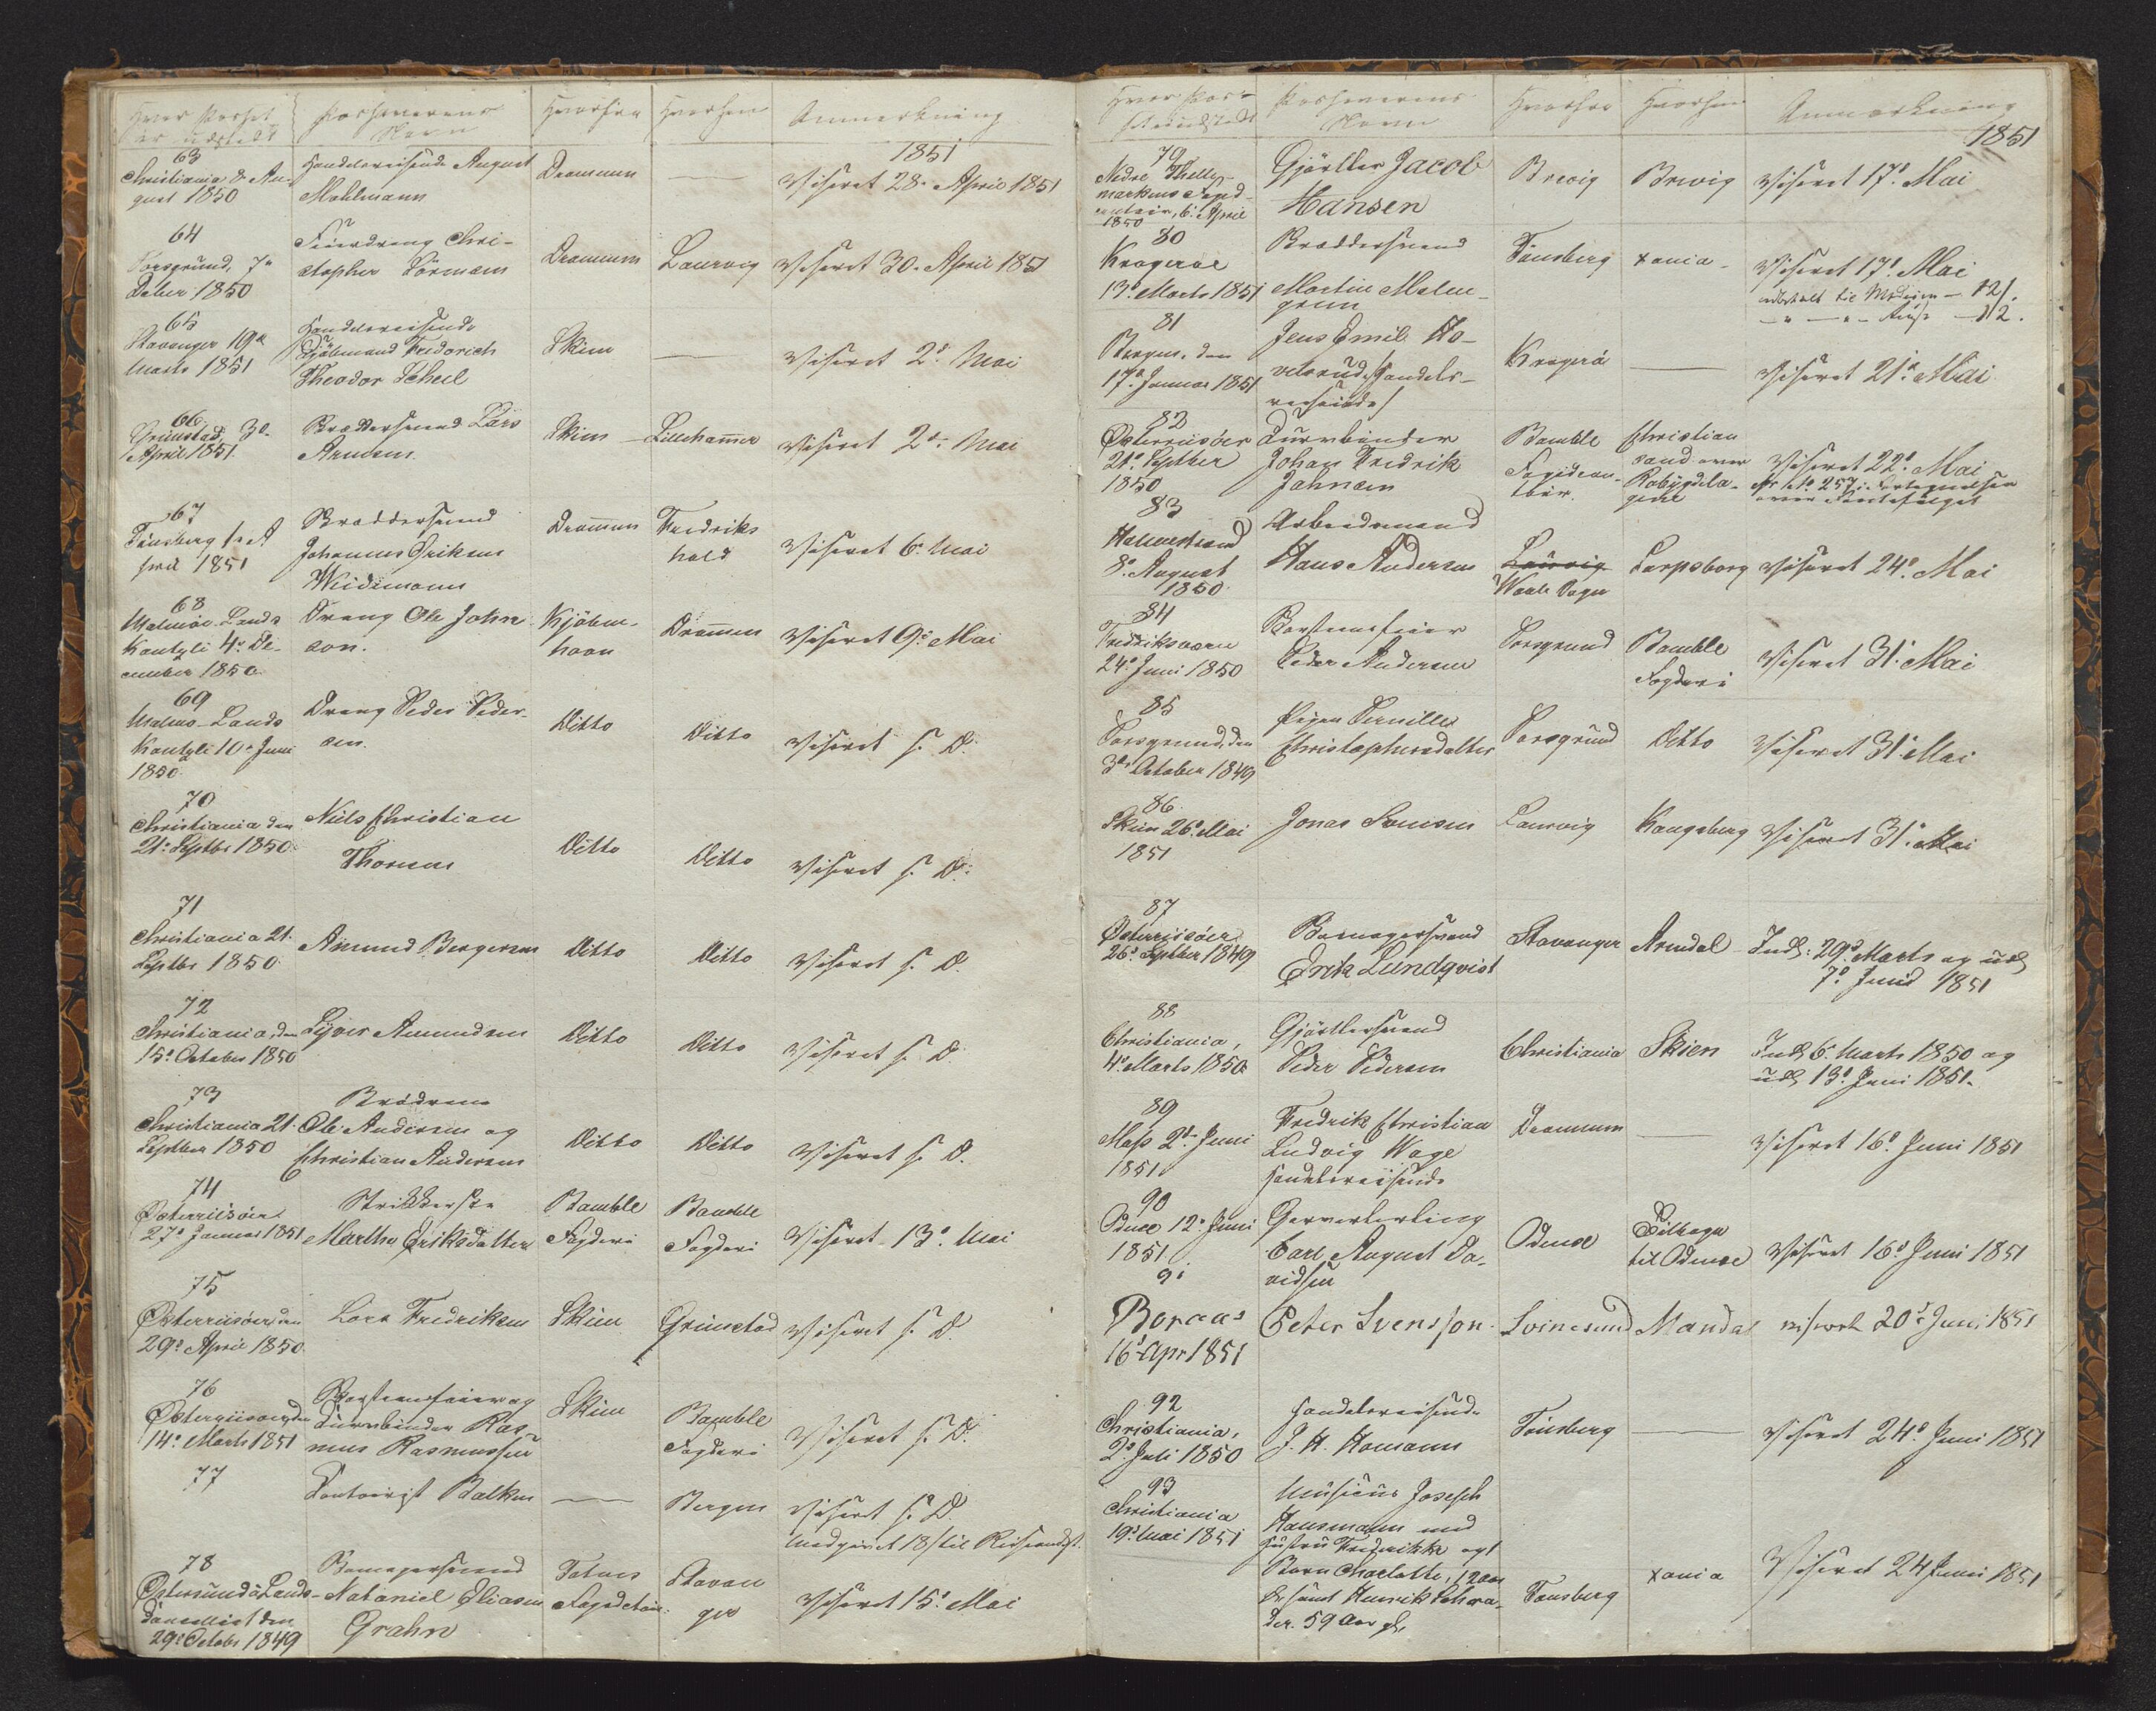 Hvor Passet er udstedt
Pashaverens Navn
Hvorfra
Hvorhen
Anmerkning
1851
63
Christiania 8. Au-
gust 1850
Handelsreisende August
Mohlmann
Drammen
Viseret 28. April 1851
64
Porsgrund, 7de
Decber 1850
Feierdreng Chri-
stopher Sörensen
Drammen
Laurvig
Viseret 30. April 1851
65
Stavanger 19de
Marts 1851
Handelsreisende
Theodor Scheel
Skien
Viseret 2d Mai
66
Grimstad, 30.
April 1851.
Bræddersvend Lars
Arntsen
Skien
Lillehammer
Viseret 2d Mai
67
Tönsberg 1. A
pril 1851
Bræddersvend
Johannes Eriksen
Weidemann
Drammen
Fredriks
hald
Viseret 6. Mai
68
Malmöe Lands
Kantzli 4de De-
cember 1850.
Dreng Ole John-
son.
Kjöben-
havn
Drammen
Viseret 9d Mai
69
Malmö Lands
Kantzli 10de Juni
1850.
Dreng Peder Peder-
sen.
Ditto
Ditto
Viseret s. D.
70
Christiania den
21d Septbr 1850
Niels Christian
Thorsen
Ditto
Ditto
Viseret s. D.
71
Christiania 21.
Septbr 1850.
Amund Bergersen
Ditto
Ditto
Viseret s. D.
72
Christiania, den
15d October 1850
Syver Amundsen
Ditto
Ditto
Viseret s. D.
73
Christiania 21.
Septber 1850
Brödrene
Ole Andersen og
Christian Andersen
Ditto
Ditto
Viseret s. D.
74
Österriisöer
27d Januar 1851
Strikkerske
Marthe Eriksdatter
Bamble
Fogderi
Bamble
Fogderi
Viseret 13d Mai
75
Österriisöer den
29d April 1850.
Lars Fredriksen
Skien
Grimstad
Viseret s. D.
76
Österriisöer, den
14d Marts 1851
Skorsteensfeier og
Kurvbinder Ras-
mus Rasmussen
Skien
Bamble
Fogderi
Viseret s. D.
77
Contoirist Balken
Bergen
Viseret s. D.
78
Östersunds Lands-
cancelliet den
29d Octobr 1849
Bomagersvend
Nataniel Eliasen
Grahn
Fogdcontoir
Stavan
ger
Viseret 15d Mai
Hvor Pas-
set er udstedt
Pashaverens
Navn
Hvorfra
Hvorhen
Anmerkning
1851
79
Nedre Thelle-
markens Foged-
contoir, 6. April
1850
Gjörtler Jacob
Hansen
Brevig
Brevig
Viseret 17d Mai
80
Krageröe
13d Marts 1851
Bræddersvend
Martin Malm-
gren
Tönsberg
Xania
Viseret 17d Mai
81
Bergen, den
17d Januar 1851
Jens Emil Ho-
velsrud, Handels-
reisende/
Kragerö
Viseret 21d Mai
82
Österriisöer
21d Septber
1850
Kurvbinder
Johan Fredrik
Johnsen
Bamble
Fogidcon-
toir.
Christian
sand over
Robygdela-
get
Viseret 22d Mai
83
Holmestrand
8d August
1850.
Arbeidsmand
Hans Andersen
Laurvig
Sarpsborg
Viseret 24d Mai
84
Fredriksværn
24d Juni 1850
Skorsteensfeier
Peder Andersen
Porsgrund
Bamble
Fogderi
Viseret 31. Mai
85
Porsgrund, den
3d October 1849
Pigen Pernille
Christophersdatter
Porsgrund
Ditto
Viseret 31. Mai
86.
Skien 26. Mai
1851
Laurvig
Kongsberg
Viseret 31. Mai
87
Österriisöer
26d Septber 1849
Bomagersvend
Erik Lundqvist
Stavanger
Arendal
Indl: 29d Marts og udl
7d Juni 1851
88
Christiania,
4d Marts 1850
Gjörtlersvend
Peder Pedersen
Christiania
Skien
Indl 6. Marts 1850 og
udl 13d Juni 1851.
89
Moss 2d Juni
1851
Fredrik Christian
Ludvig Wage
Handelsreisende
Drammen
Viseret 16d Juni 1851
90
Odense 12d Juni
1851
Garverlærling
Carl August Da-
vidsen
Odense
Tilbage
til Odense
Viseret 16d Juni 1851
91
Boraas
16d Apr 1851
Peter Svensson.
Svinesund
Mandal
viseret 20d Juni 1851
92
Christiania,
2d Juli 1850
Handelsreisende
J. H. Homann
Tönsberg
Viseret 24d Juni 1851
93
Christiania
19d Mai 1851
Musicus Joseph
Hausmann med
Hustru Fredrikke og 1
Barn Charlotte, 12 Aar
Tönsberg
Xania
Viseret 24 Juni 1851
der. 59 Aar gl.